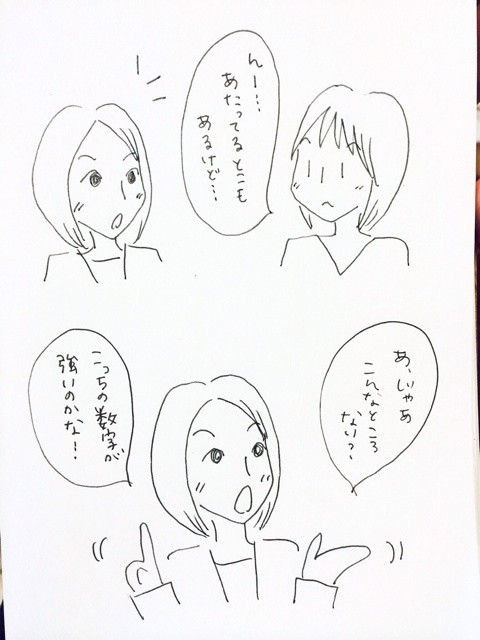 んー…
あたってるとこも
あるけど…
あ、じゃあ
こんなところ
ない？
こっちの数字が
強いのかな…